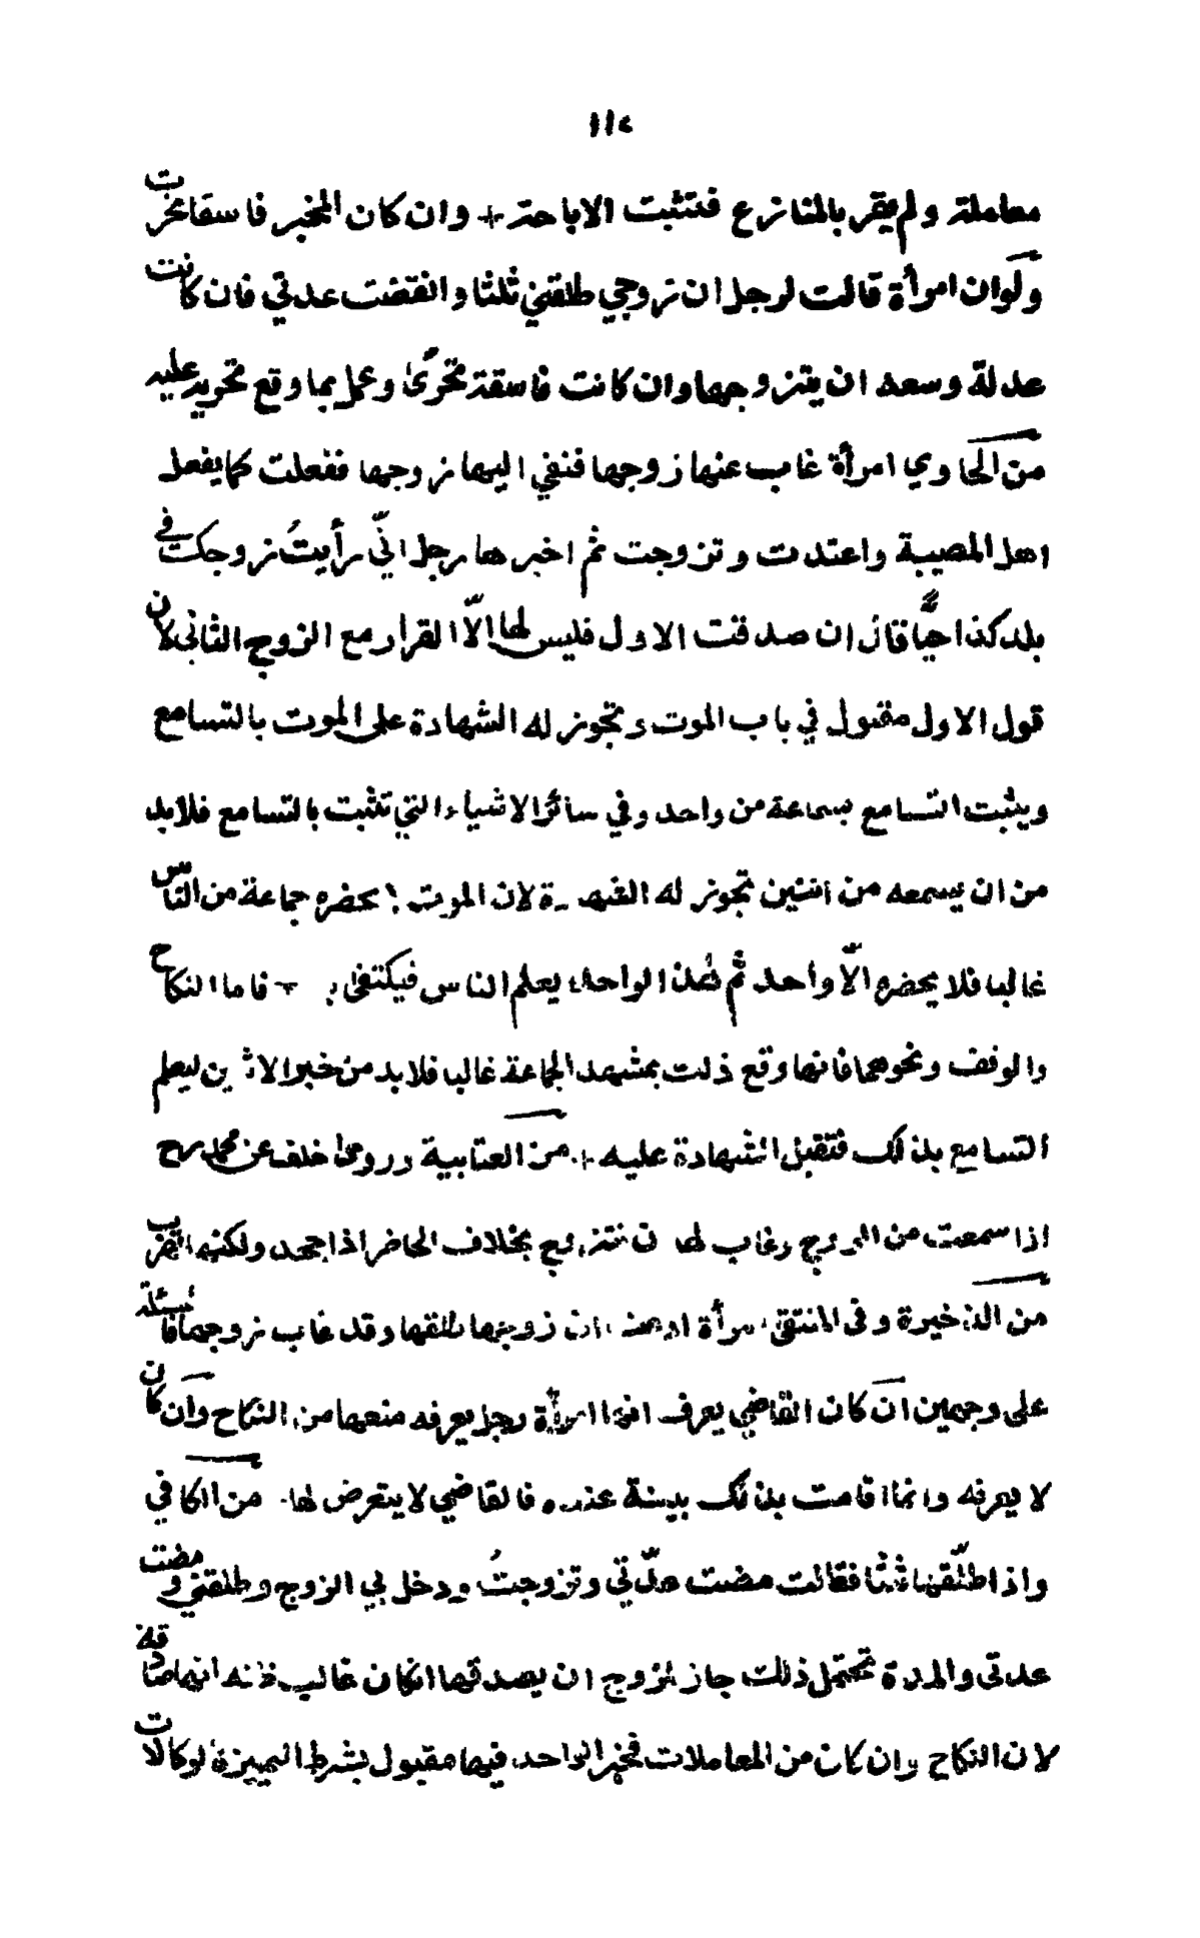 معاملة ولم يقر بالمنازع فتثبت الاباحة + وان كان المخبر فاسقا تحرت
ولو ان امرأة قالت لرجل ان زوجي طلقني ثلثا وانقضت عدتي فان كانت
عدلة وسعه ان يتزوجها وان كانت فاسقة تحرّى وعمل بما وقع تحريه عليه
من الحاوي امرأة غاب عنها زوجها فنعي اليها زوجها ففعلت كما يفعل
اهل المصيبة واعتدت وتزوجت ثم اخبرها رجل انّي رأيتُ زوجك في
بلد كذا حيًّا قال ان صدقت الاول فليس لها الّا القرار مع الزوج الثاني لان
قول الاول مقبول في باب الموت وتجوز له الشهادة على الموت بالتسامع
ويثبت التسامع بسماعة من واحد وفي سائر الاشياء التي تثبت بالتسامع فلابد
من ان يسمعه من اثنين تجوز له الشهادة لان الموت لا يحضره جماعة من الناس
غالبا فلا يحضره الّا واحد ثم هذا الواحد يعلم الناس فيكتفى به + فاما النكاح
والوقف ونحوهما فانها وقع ذلك بمشهد الجماعة غالبا فلا بد من خبر الاثنين ليعلم
التسامع بذلك فتقبل الشهادة عليه + من العتابية وروى خلف عن محمد رح
اذا سمعت من الزوج وغاب لها ان تتزوج بخلاف الحاضر اذا جحد ولكنها تهرب
من الذخيرة وفي المنتقى امرأة ادعت ان زوجها طلقها وقد غاب زوجها فالمسئلة
على وجهين ان كان القاضي يعرف انها امرأة رجل يعرفه منعها من النكاح وان كان
لا يعرفه وانما اقامت بذلك بينة عنده فالقاضي لا يتعرض لها من الكافي
واذا طلّقها ثلثا فقالت مضت عدّتي وتزوجتُ ودخل بي الزوج وطلقني ومضت
عدتي والمدة تحتمل ذلك جاز للزوج ان يصدقها ان كان غالب ظنه انها صادقة
لان النكاح وان كان من المعاملات فخبر الواحد فيها مقبول بشرط التمييز كالوكالات